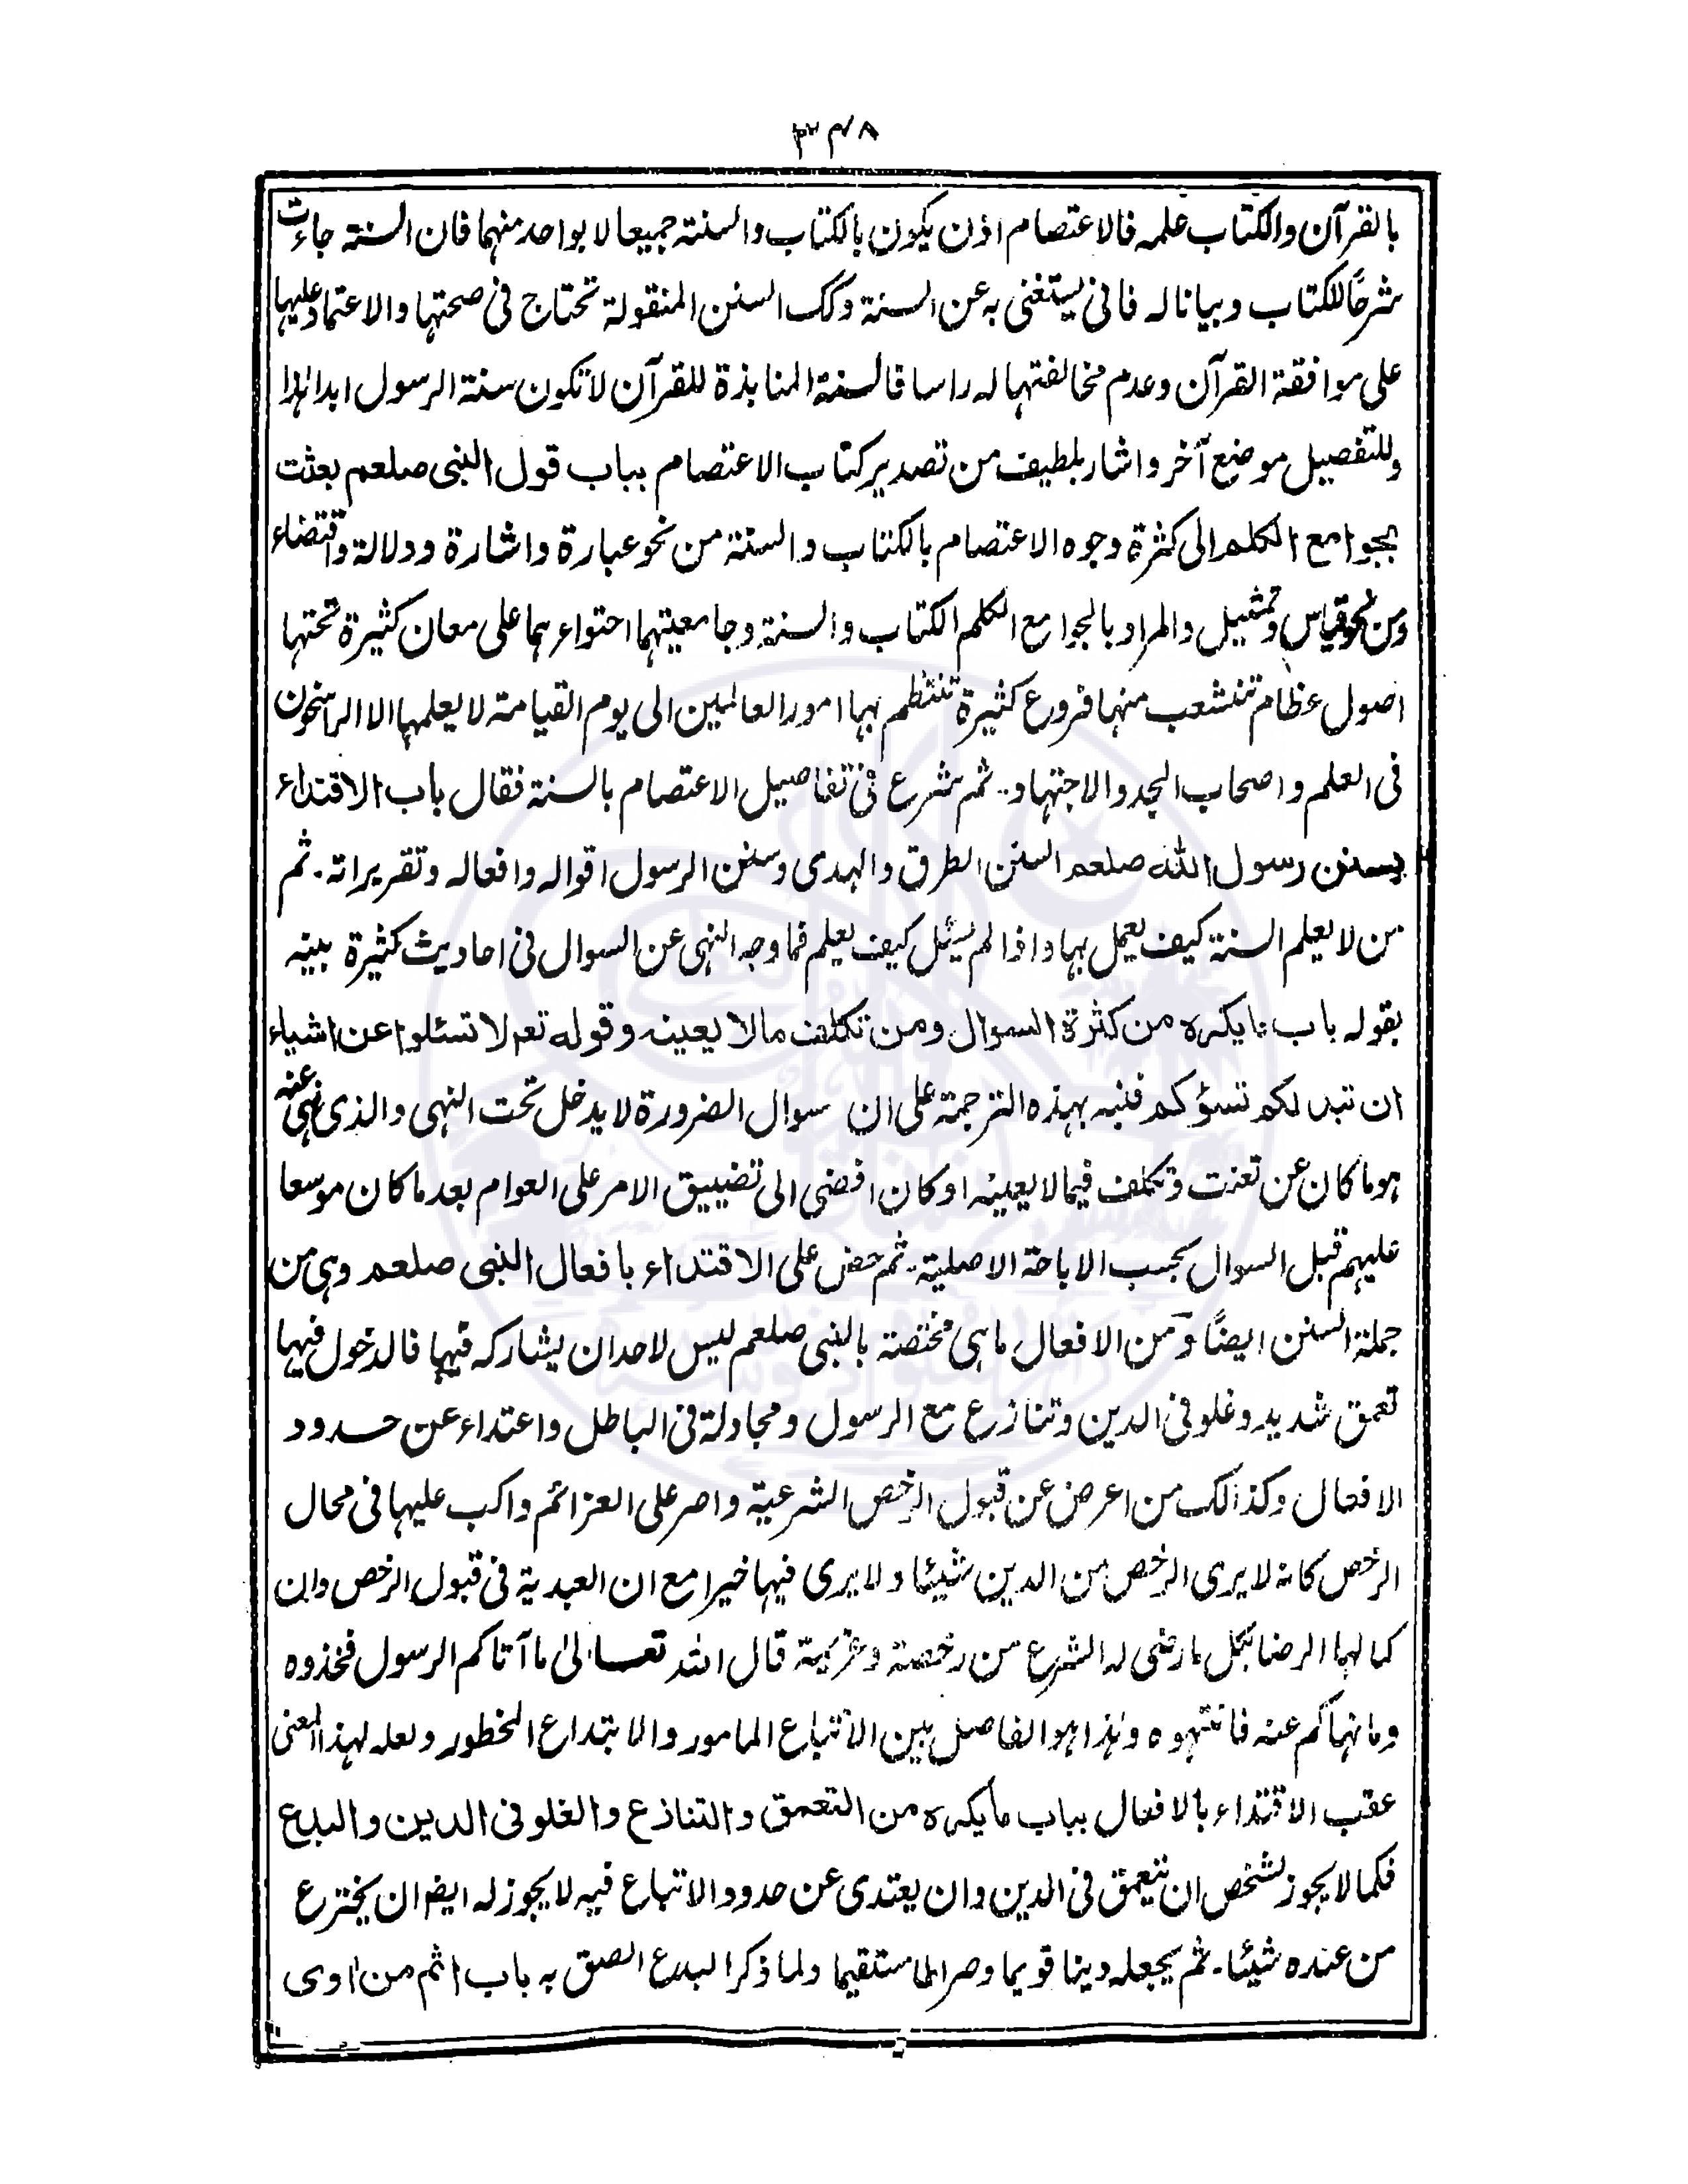 ۳۴۸
بالقرآن والکتاب علمه فالاعتصام اذن یکون بالکتاب والسنته جمیعا لا بواحد منهما فان السنته جاءت
شرحًا للکتاب وبیانا له فانی یستغنی به عن السنة وکک السنن المنقولة تحتاج فی صحتها والاعتماد علیها
علی موافقة القرآن وعدم مخالفتها له راسا فالسنة المنابذة للقرآن لا تکون سنة الرسول ابدا هذا
وللتفصیل موضع آخر واشار بلطیف من تصدیر کتاب الاعتصام بباب قول النبی صلعم بعثت
بجوامع الکلم الی کثرة وجوه الاعتصام بالکتاب والسنة من نحو عبارة واشارة ودلالة واقتضاء
ومن نحو قیاس وتمثیل والمراد بالجوامع الکلم الکتاب والسنة وجامعیتهما احتواءهما علی معان کثیرة تحتها
اصول عظام تنشعب منها فروع کثیرة تنتظم بها امور العالمین الی یوم القیامة لا یعلمها الا الراسخون
فی العلم واصحاب الجد والاجتهاد.. ثم شرع فی تفاصیل الاعتصام بالسنة فقال باب الاقتداء
بسنن رسول الله صلعم السنن الطرق والهدی وسنن الرسول اقواله وافعاله وتقریراته. ثم
من لا یعلم السنة کیف یعمل بها واذا لم یسئل کیف یعلم فما وجه النهی عن السوال فی احادیث کثیرة بینه
بقوله باب ما یکره من کثرة السوال ومن تکلف مالا یعینه وقوله تعم لا تسئلوا عن اشیاء
ان تبد لکم تسؤکم فنبه بهذه الترجمة علی ان سوال الضرورة لا یدخل تحت النهی والذی نهی عنه
هو ما کان عن تعنت وتکلف فیما لا یعینه او کان افضی الی تضییق الامر علی العوام بعد ما کان موسعا
علیهم قبل السوال بحسب الاباحة الاصلیة. ثم حض علی الاقتداء بافعال النبی صلعم وهی من
جملة السنن ایضًا ومن الافعال ما هی مختصة بالنبی صلعم لیس لاحد ان یشارکه فیها فالدخول فیها
تعمق شدید وغلو فی الدین وتنازع مع الرسول ومجادلة فی الباطل واعتداء عن حدود
الافعال وکذالک من اعرض عن قبول الرخص الشرعیة واصر علی العزائم واکب علیها فی محال
الرخص کانه لا یری الرخص من الدین شیئا ولا یری فیها خیرا مع ان العبدیة فی قبول الرخص وان
کمالها الرضا بکل ما رضی له الشرع من رخصة وعزیمة قال الله تعالیٰ ما آتاکم الرسول فخذوه
وما نهاکم عنه فانتهوه وهذا هو الفاصل بین الاتباع المامور والابتداع المخطور ولعله لهذا المعنی
عقب الاقتداء بالافعال بباب ما یکره من التعمق والتنازع والغلو فی الدین والبدع
فکما لا یجوز لشخص ان یتعمق فی الدین وان یعتدی عن حدود الاتباع فیه لا یجوز له ایضا ان یخترع
من عنده شیئا. ثم یجعله دینا قویما وصراطا مستقیما ولما ذکر البدع الصق به باب اثم من اوی